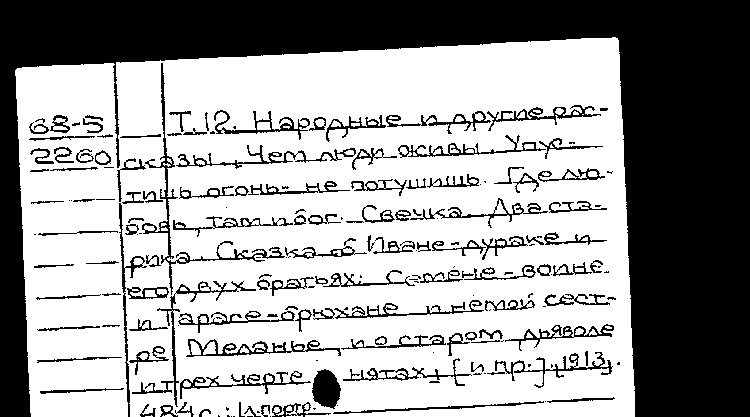 68-5 Т.12. Народные и другие рас-
2260 сказы. Чем люди живы. Упус-
тишь огонь - не потушишь. Где лю-
бовь, там и бог. Свечка. Два ста-
рика. Сказка об Иване-дураке и
его двух братьях: Семене-воине
и Тарасе-брюхане и немой сест-
ре Меланье, и о старом дьяволе
и трех черте нятах, [и пр.], 1913.
484 с.; 1 л. портр.